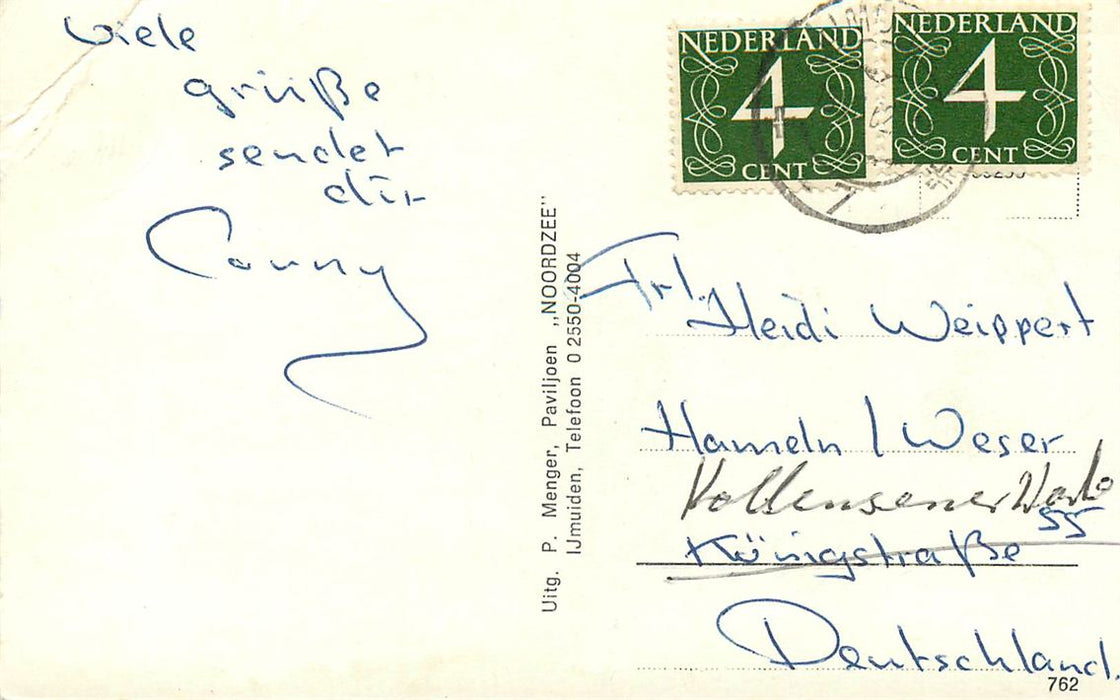 Viele
grüße
sendet
dir
Conny
Uitg. P. Menger, Paviljoen „NOORDZEE"
IJmuiden, Telefoon 0 2550-4004
NEDERLAND
4
CENT
NEDERLAND
4
CENT
Frl. Heidi Weippert
Hameln / Weser
55
Königstraße
Deutschland.
762